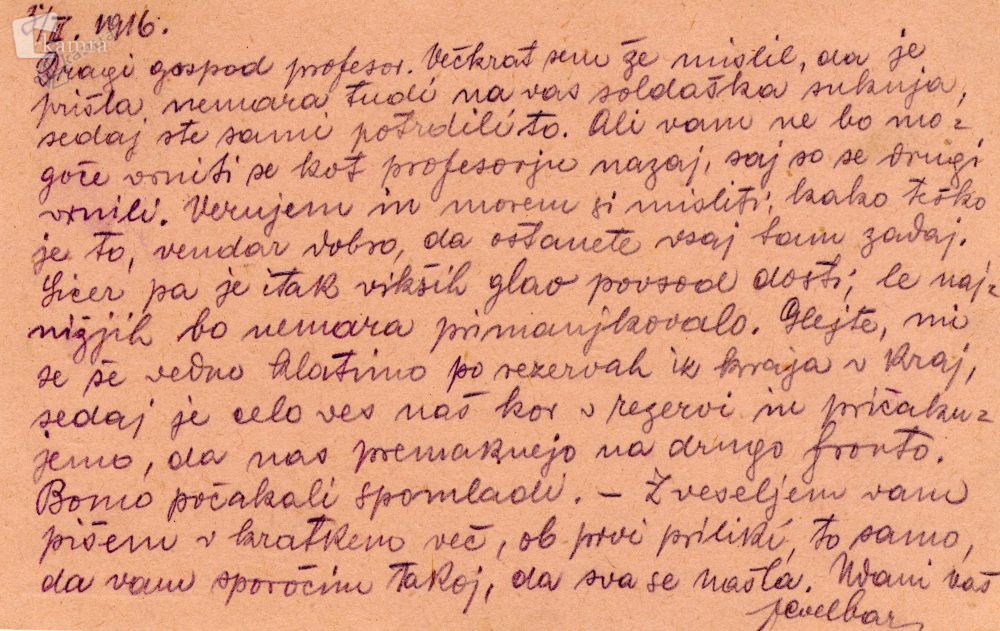 /II. 1916.
kamra
Dragi gospod profesor. Večkrat sem že mislil, da je
prišla nemara tudi na vas soldaška suknja,
sedaj ste sami potrdili to. Ali vam ne bo mo=
goče vrniti se kot profesorju nazaj, saj so se drugi
vrnili. Verujem in morem si misliti, kako težko
je to, vendar dobro, da ostanete vsaj tam zadaj.
Sicer pa je itak vikših glav povsod dosti; le naj=
nižjih bo nemara primanjkovalo. Glejte, mi
se še vedno klatimo po rezervah iz kraja v kraj,
sedaj je celo ves naš kor v rezervi in pričaku=
jemo, da nas premaknejo na drugo fronto.
Bomo počakali spomladi. – Z veseljem vam
pišem v kratkem več, ob prvi priliki, to samo,
da vam sporočim takoj, da sva se našla. Udani vaš